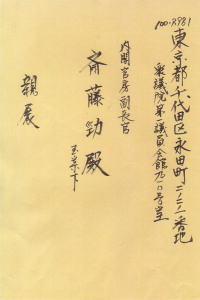 100-8981
東京都千代田区永田町二ノ二ノ一番地
衆議院第一議員会館九一〇号室
内閣官房副長官
斉藤勁殿
玉案下
親展